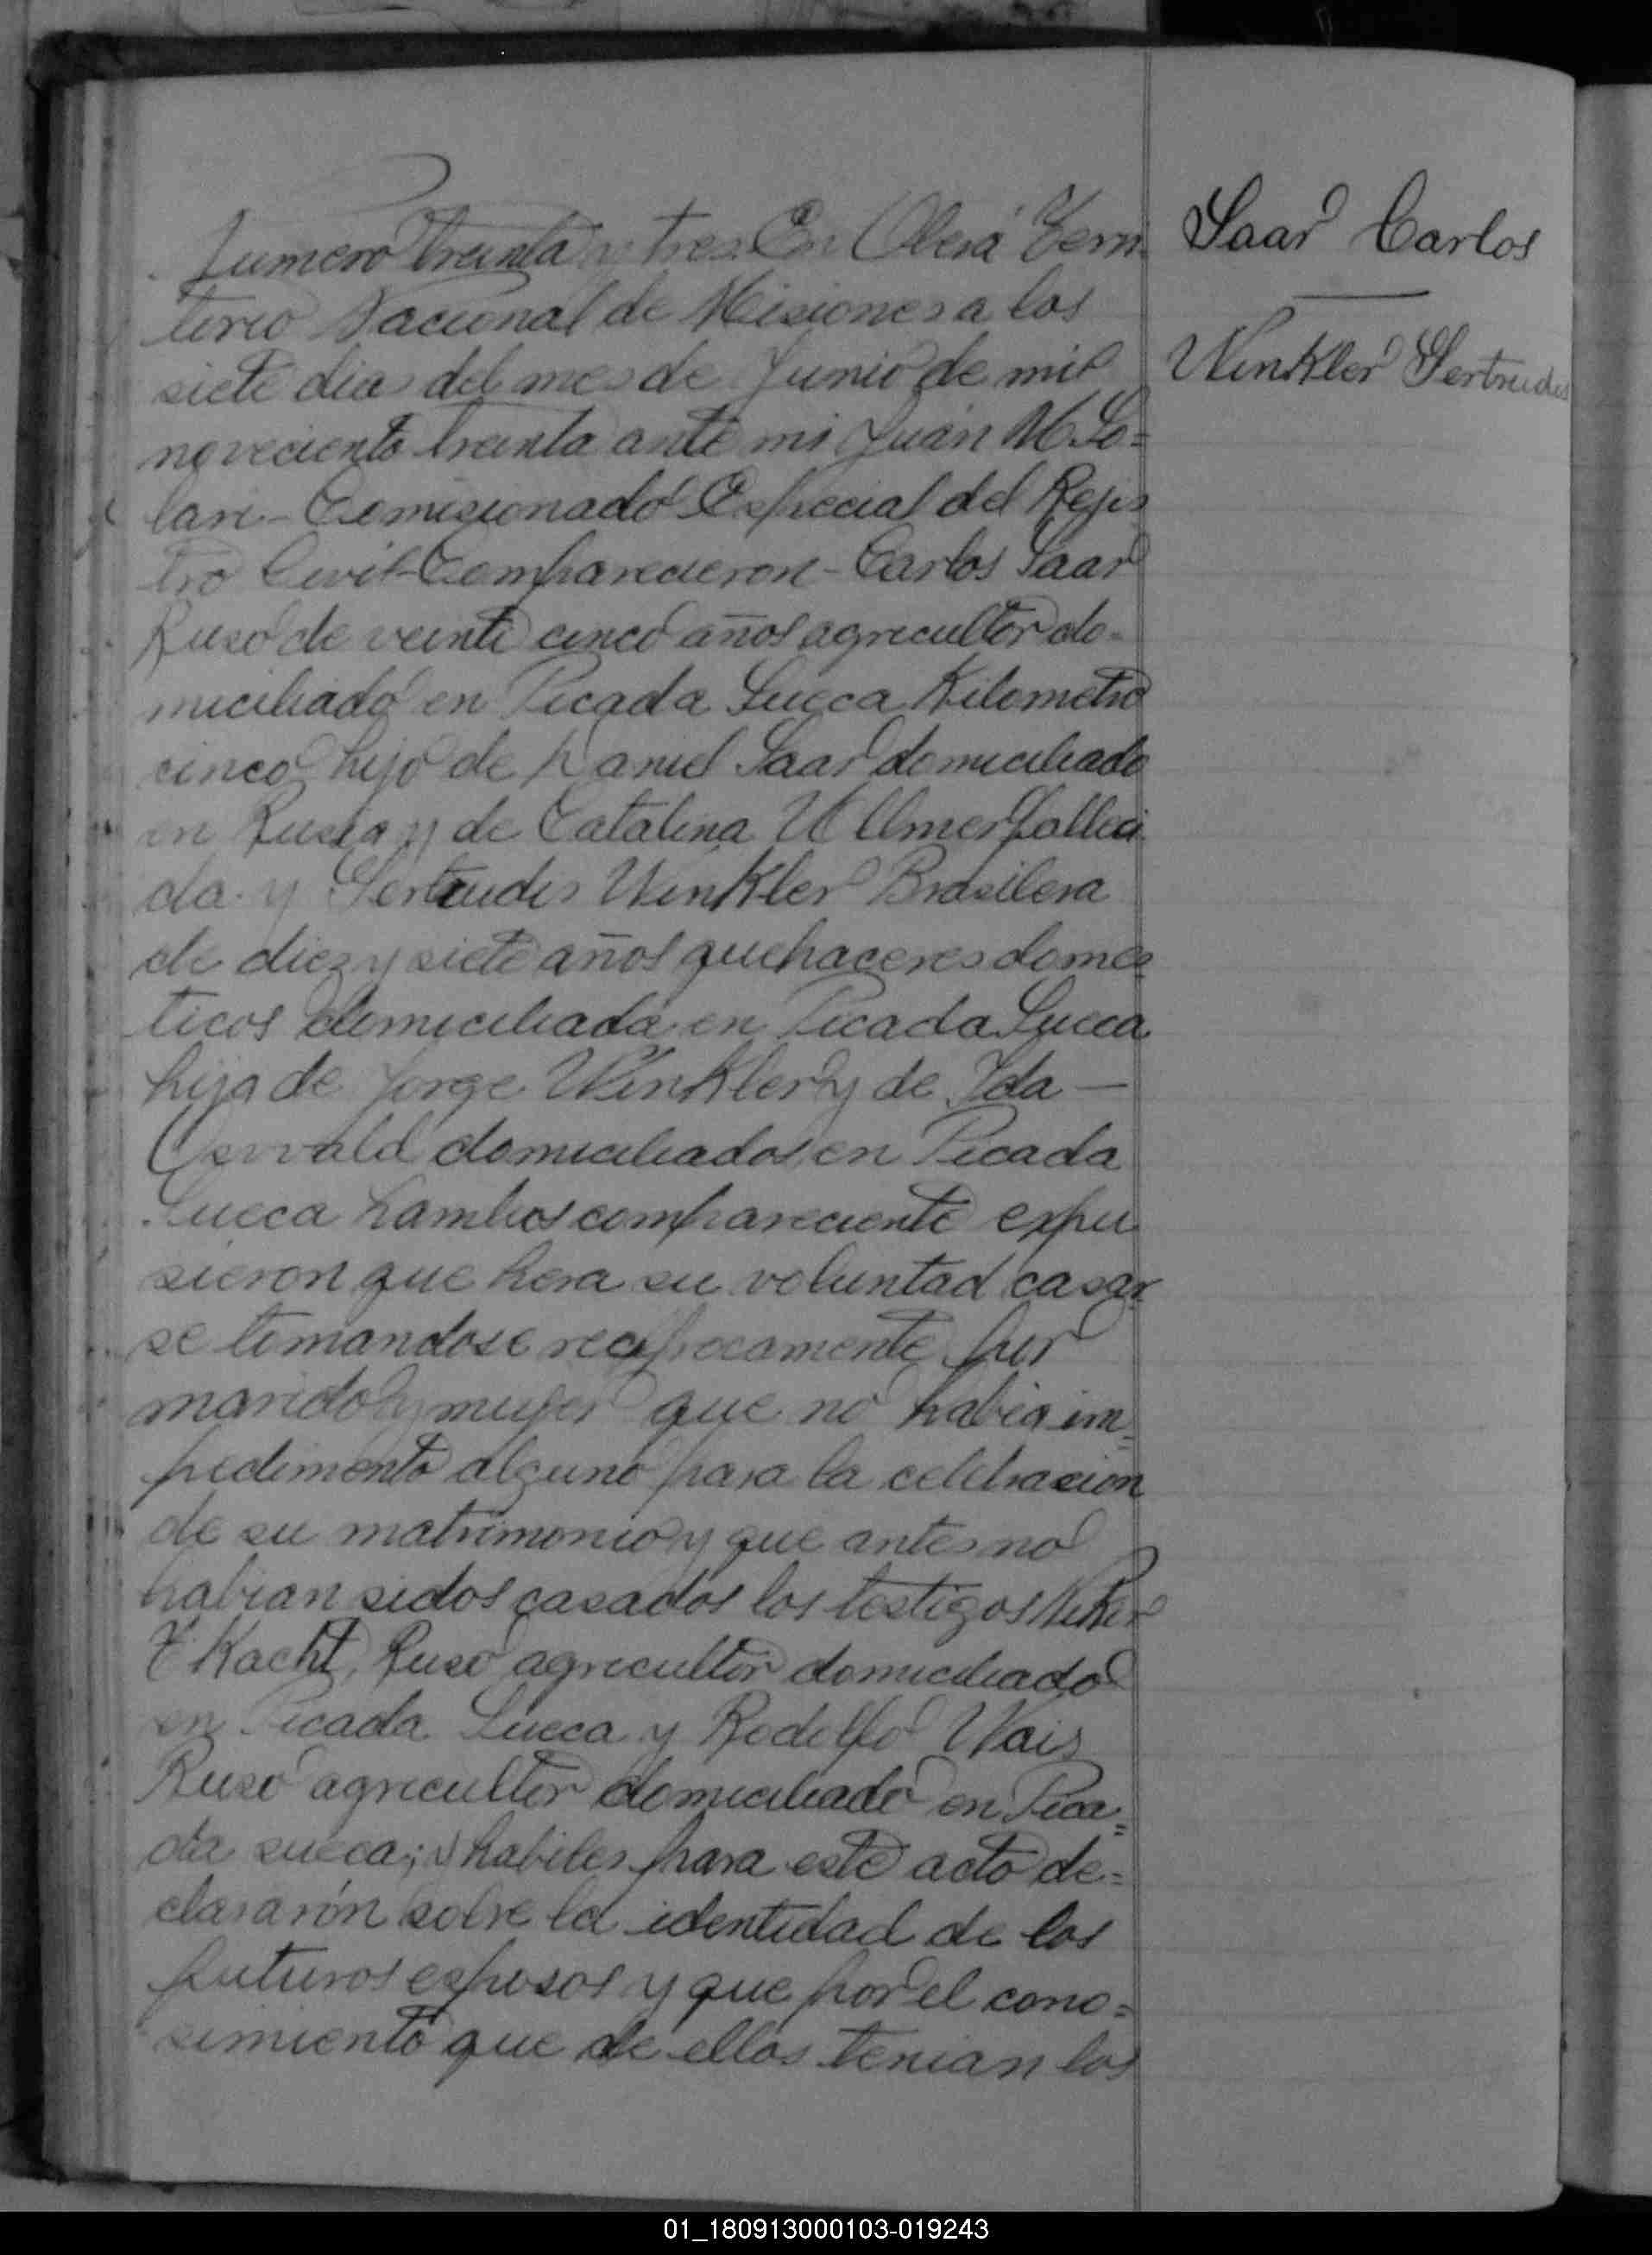 Numero treinta y tres En Oberá Terri
torio Nacional de Misiones a los
siete dias del mes de Junio de mil
noveciento treinta ante mi Juan M. So=
lari - Comisionado Especial del Rejis
tro Civil - Comparecieron - Carlos Saar
Ruso de veinti cinco años agricultor do-
miciliado en Picada Sueca Kilometro
cinco hijo de Daniel Saar domiciliado
en Rusia y de Catalina Ullmer falleci
da. y Gertrudis Winkler Brasilera
de diez y siete años quehaceres domes
ticos domiciliada en Picada Sueca
hija de Jorge Winkler y de Ida —
Oswald domiciliados en Picada
Sueca hambos compareciente expu
sieron que hera su voluntad casar
se tomandose reciprocamente por
marido y mujer que no habia im=
pedimento alguno para la celebracion
de su matrimonio y que antes no
habian sidos casados los testigos
Kacht, Ruso agricultor domiciliado
en Picada Sueca y Rodolfo Wais
Ruso agricultor domiciliado en Pica=
da sueca; y habiles para este acto de=
clararón sobre la identidad de los
futuros esposos y que por el cono=
simiento que de ellos tenian los
Saar Carlos
Winkler Gertrudis
01_180913000103-019243